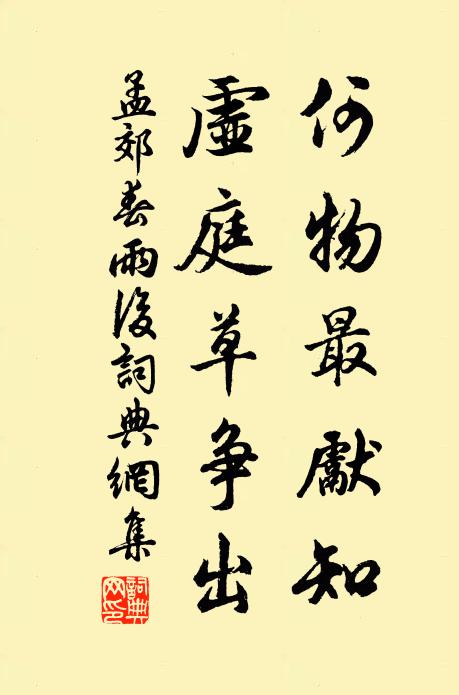 何物最獻知
虛庭草争出
孟郊春雨後詞典網集
詞典网印